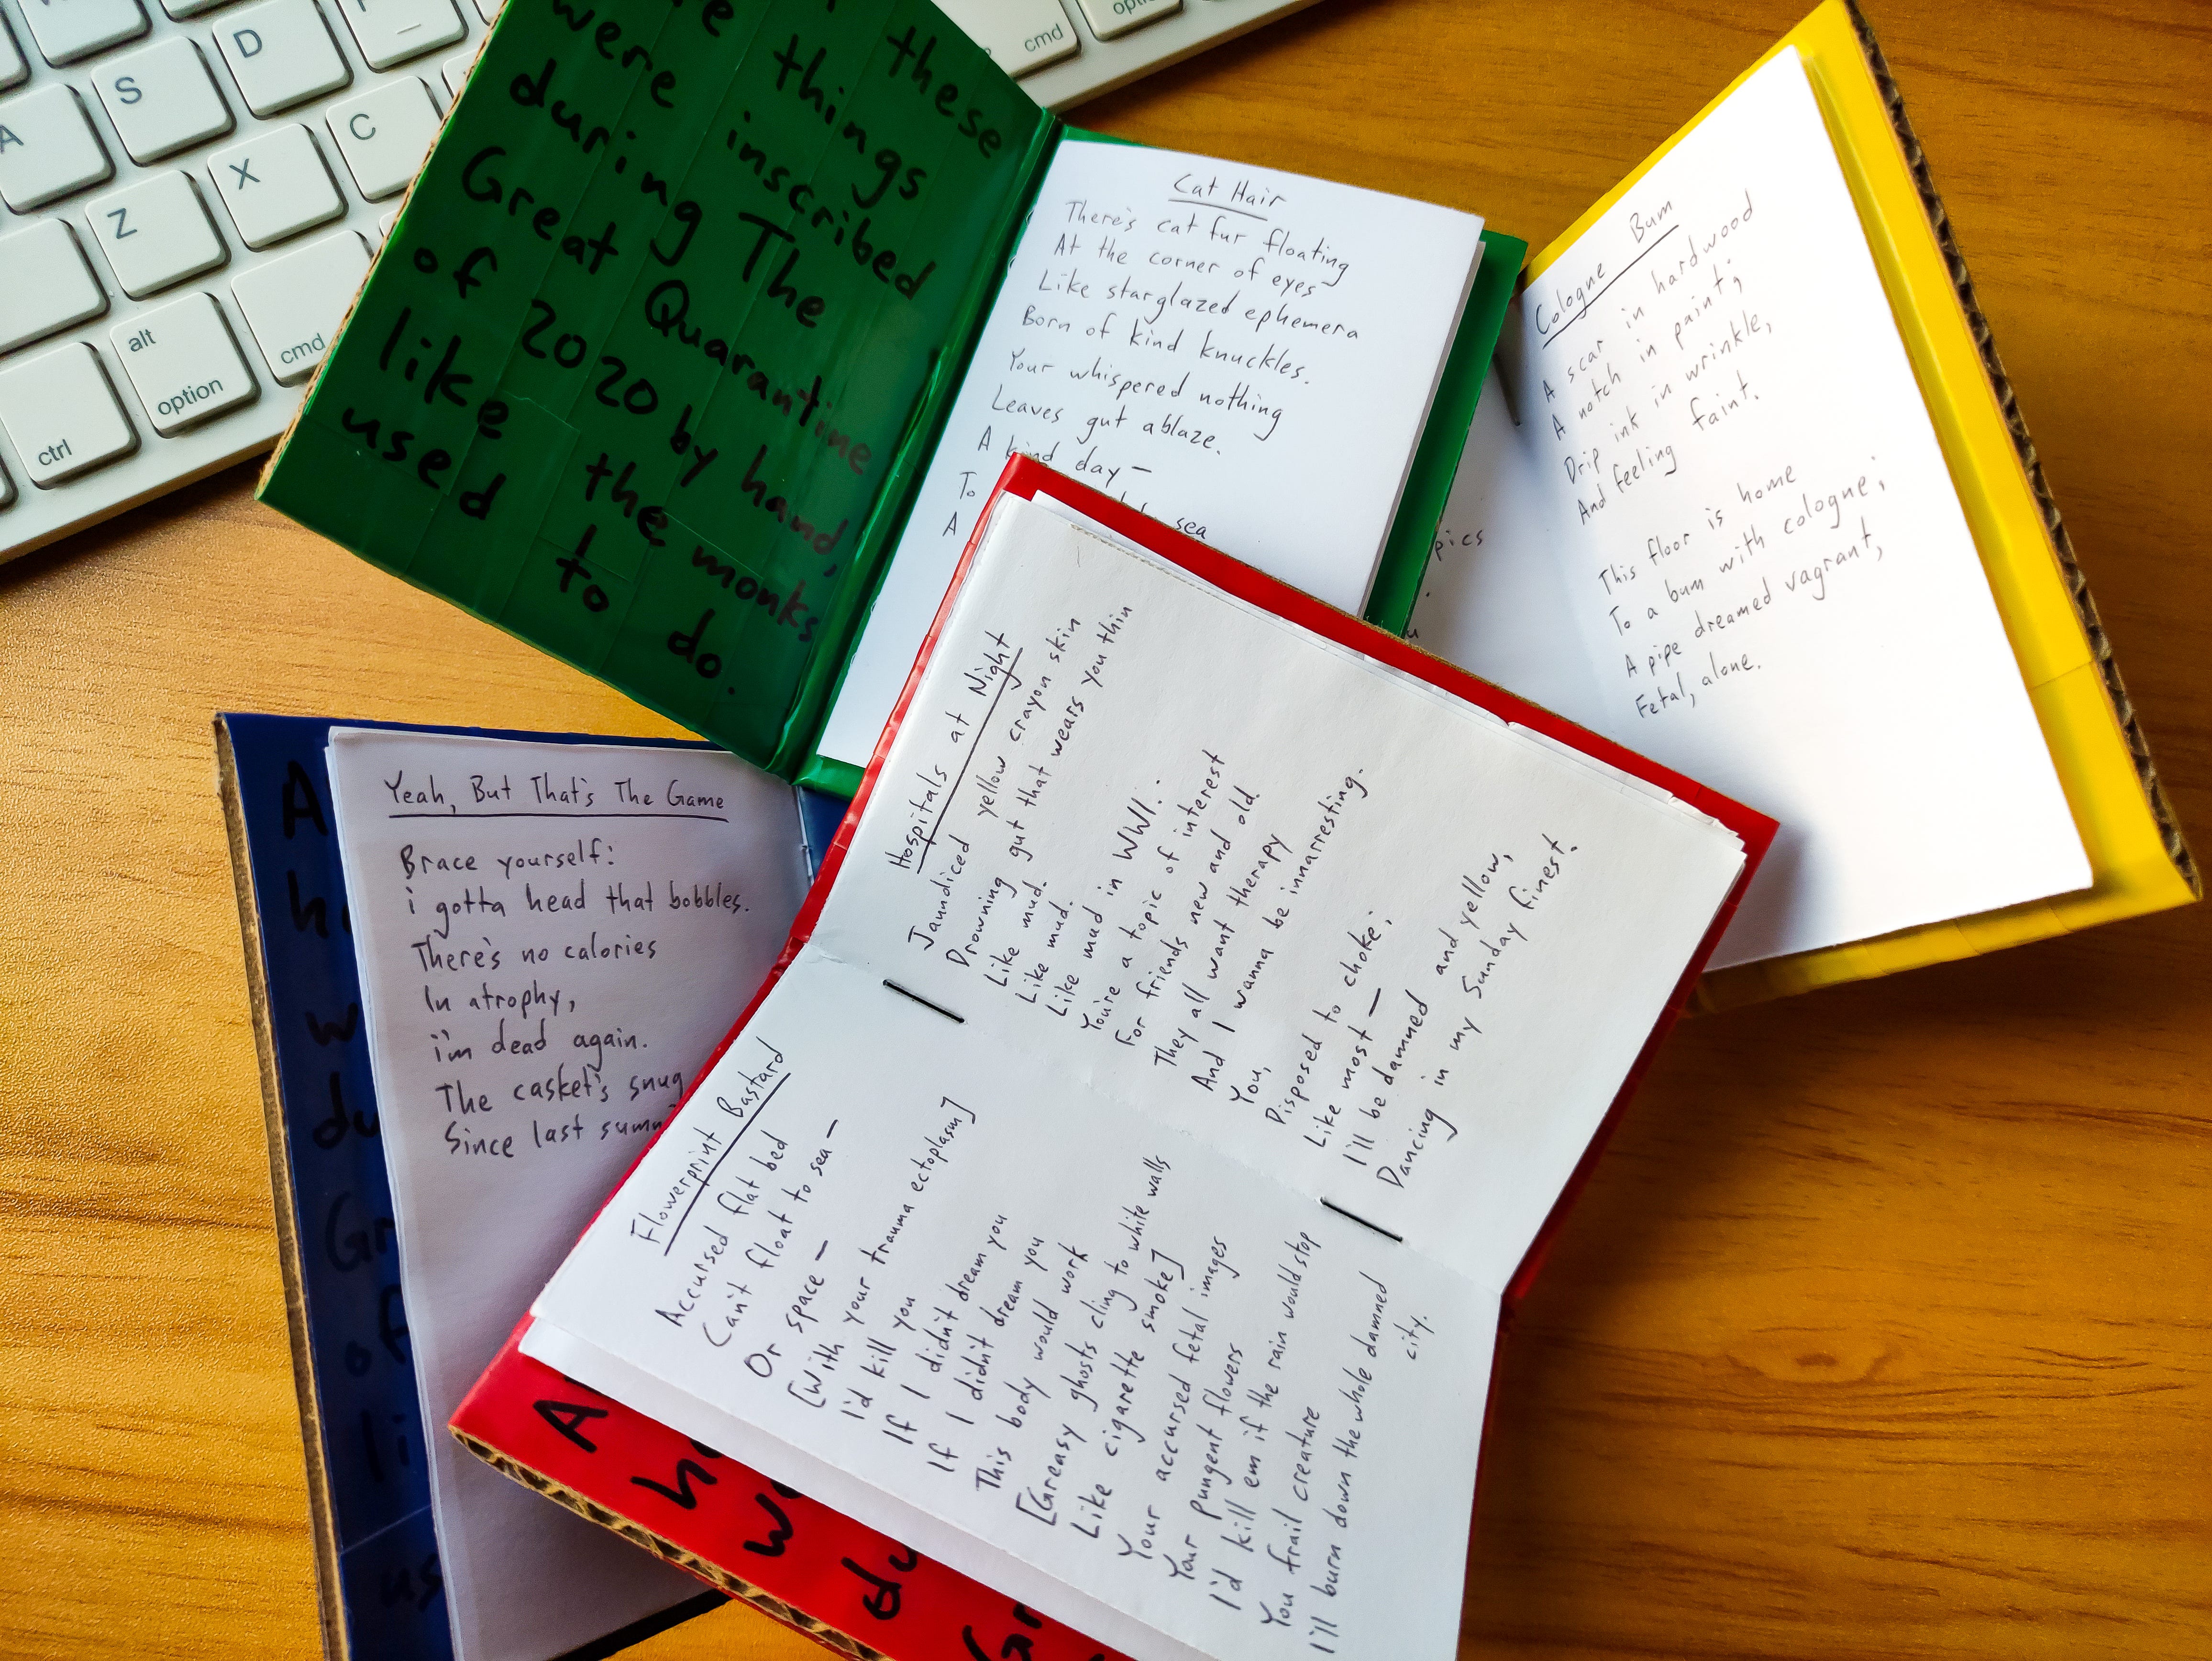 S
D
A
Z
X
C
ctrl
alt
option
cmd
cmd
these
things
were inscribed
during The
Great Quarantine
of 2020 by hand,
like the monks
used to do.
Cat Hair
There's cat fur floating
At the corner of eyes
Like starglazed ephemera
Born of kind knuckles.
Your whispered nothing
Leaves gut ablaze.
A kind day —
To
sea
A
pics
Cologne Bum
A scar in hardwood
A notch in paint;
Drip ink in wrinkle,
And feeling faint.
This floor is home
To a bum with cologne;
A pipe dreamed vagrant,
Fetal, alone.
Yeah, But That's The Game
Brace yourself:
i gotta head that bobbles.
There's no calories
In atrophy,
i'm dead again.
The casket's snug
Since last
Hospitals at Night
Jaundiced yellow crayon skin
Drowning gut that wears you thin
Like mud.
Like mud.
Like mud in WWI.
You're a topic of interest
For friends new and old.
They all want therapy
And I wanna be innarresting.
You,
Disposed to choke;
Like most —
I'll be damned and yellow,
Dancing in my Sunday finest.
Flowerprint Bastard
Accursed flat bed
Can't float to sea —
Or space —
[With your trauma ectoplasm]
I'd kill you
If I didn't dream you
If I didn't dream you
This body would work
[Greasy ghosts cling to white walls
Like cigarette smoke]
Your accursed fetal images
Your pungent flowers
I'd kill em if the rain would stop
You frail creature
I'll burn down the whole damned
city.